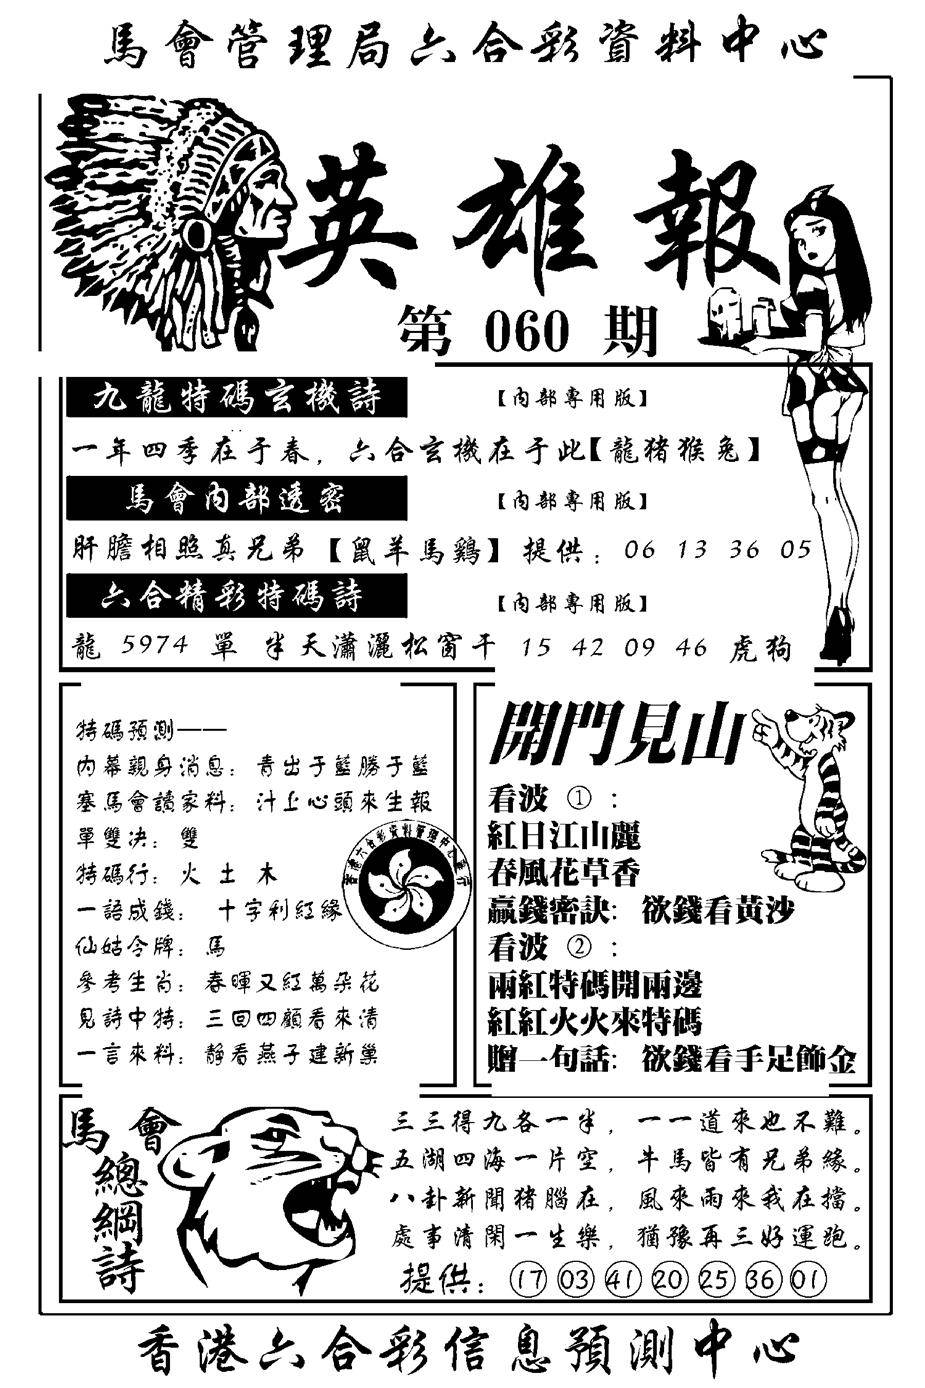 馬會管理局六合彩資料中心
英雄報
第 060 期
九龍特碼玄機詩 【內部專用版】
一年四季在于春，六合玄機在于此【龍猪猴兔】
馬會內部透密 【內部專用版】
肝膽相照真兄弟【鼠羊馬鷄】提供：06 13 36 05
六合精彩特碼詩 【內部專用版】
龍 5974 單 半天瀟灑松窗干 15 42 09 46 虎狗
特碼預測——
內幕親身消息：青出于藍勝于藍
塞馬會讀家料：汁上心頭來生報
單雙决：雙
特碼行：火 土 木
一語成錢： 十字利紅緣
仙姑令牌：馬
參考生肖：春暉又紅萬朵花
見詩中特：三回四顧看來清
一言來料：静看燕子建新巢
香港六合彩資料管理中心發行
開門見山
看波 ①：
紅日江山麗
春風花草香
贏錢密訣：欲錢看黃沙
看波 ②：
兩紅特碼開兩邊
紅紅火火來特碼
贈一句話：欲錢看手足飾金
馬會
總綱詩
三三得九各一半，一一道來也不難。
五湖四海一片空，牛馬皆有兄弟緣。
八卦新聞猪腦在，風來雨來我在擋。
處事清閑一生樂，猶豫再三好運跑。
提供：⑰ 03 41 ⑳ 25 36 01
香港六合彩信息預測中心